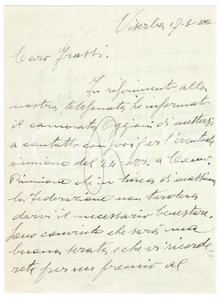 Viserba 17-8-
Caro Frassi.
In riferimento alla
nostra telefonata ho informato
il camerata Oggioni di mettersi
a contatto con voi per l'eventuale
riunione del 24 a
Riminiana che in linea di massima
la Federazione non tarderà
darvi il necessario benestare.
Sono convinto che sarà una
buona serata e che vi ricorde-
rete per un premio al